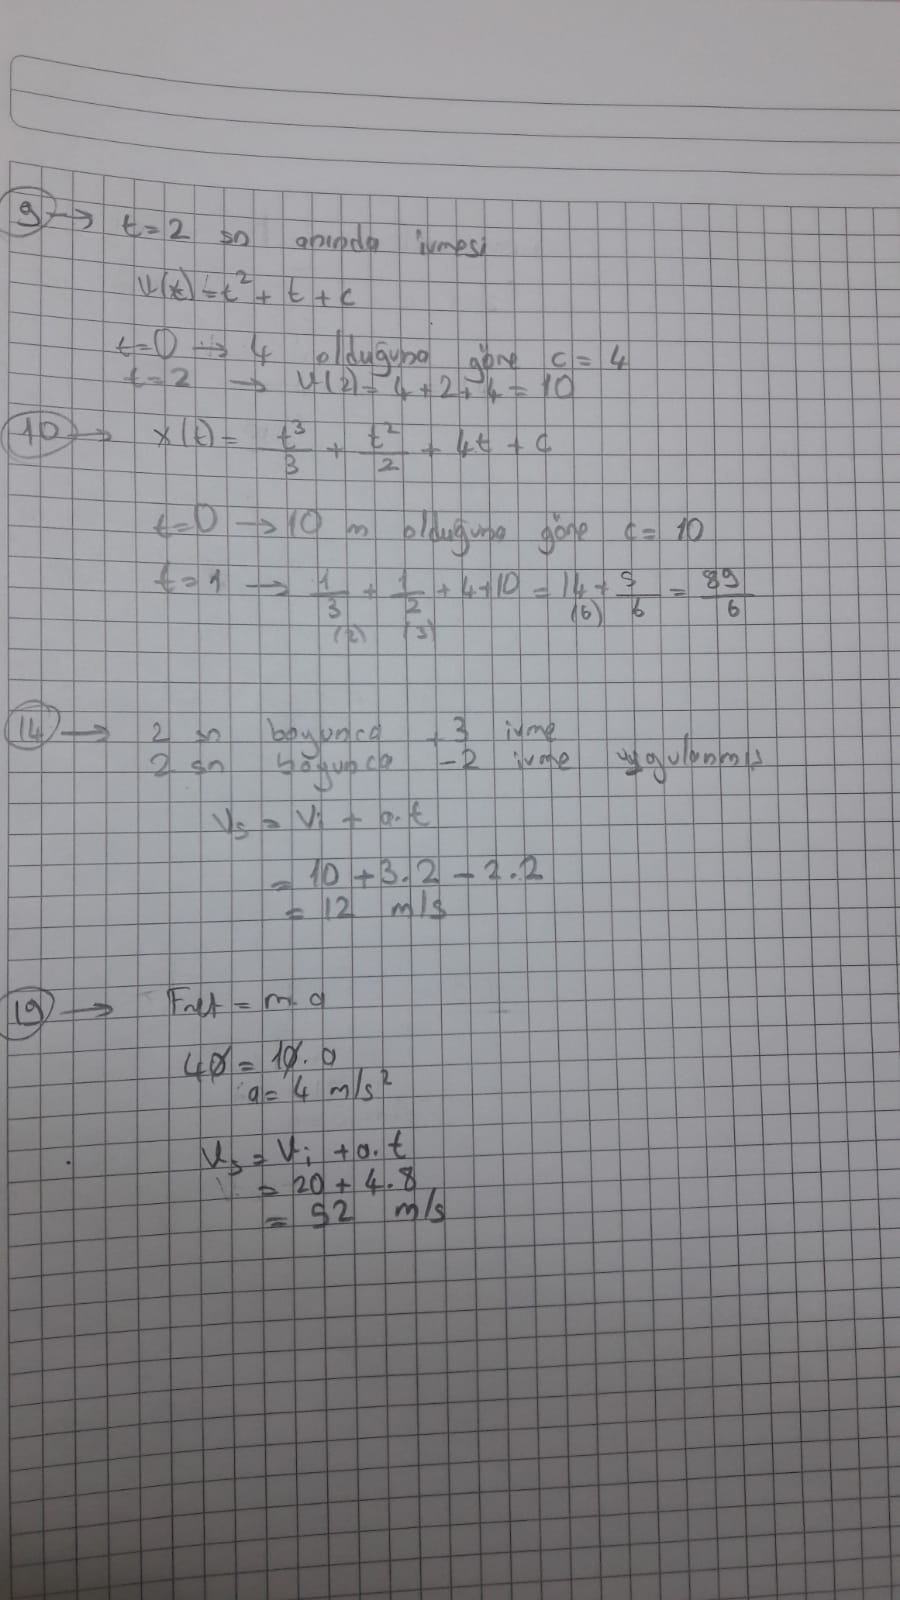 9 → t=2 sn anında ivmesi
V(t)=t² + t + c
t=0 → 4 olduğuna göre c = 4
t=2 → V(2)= 4+2+4 = 10
10 → x(t)= t³/3 + t²/2 + 4t + c
t=0 → 10 m olduğuna göre c= 10
t=1 → 1/3 + 1/2 + 4+10 = 14 + 5/6 = 89/6
(2) (3) (6)
14 → 2 sn boyunca +3 ivme
2 sn boyunca -2 ivme uygulanmış
Vs = Vi + a.t
= 10 + 3.2 - 2.2
= 12 m/s
19 → Fnet = m.a
40 = 10.a
a= 4 m/s²
Vs = Vi + a.t
= 20 + 4.8
= 52 m/s